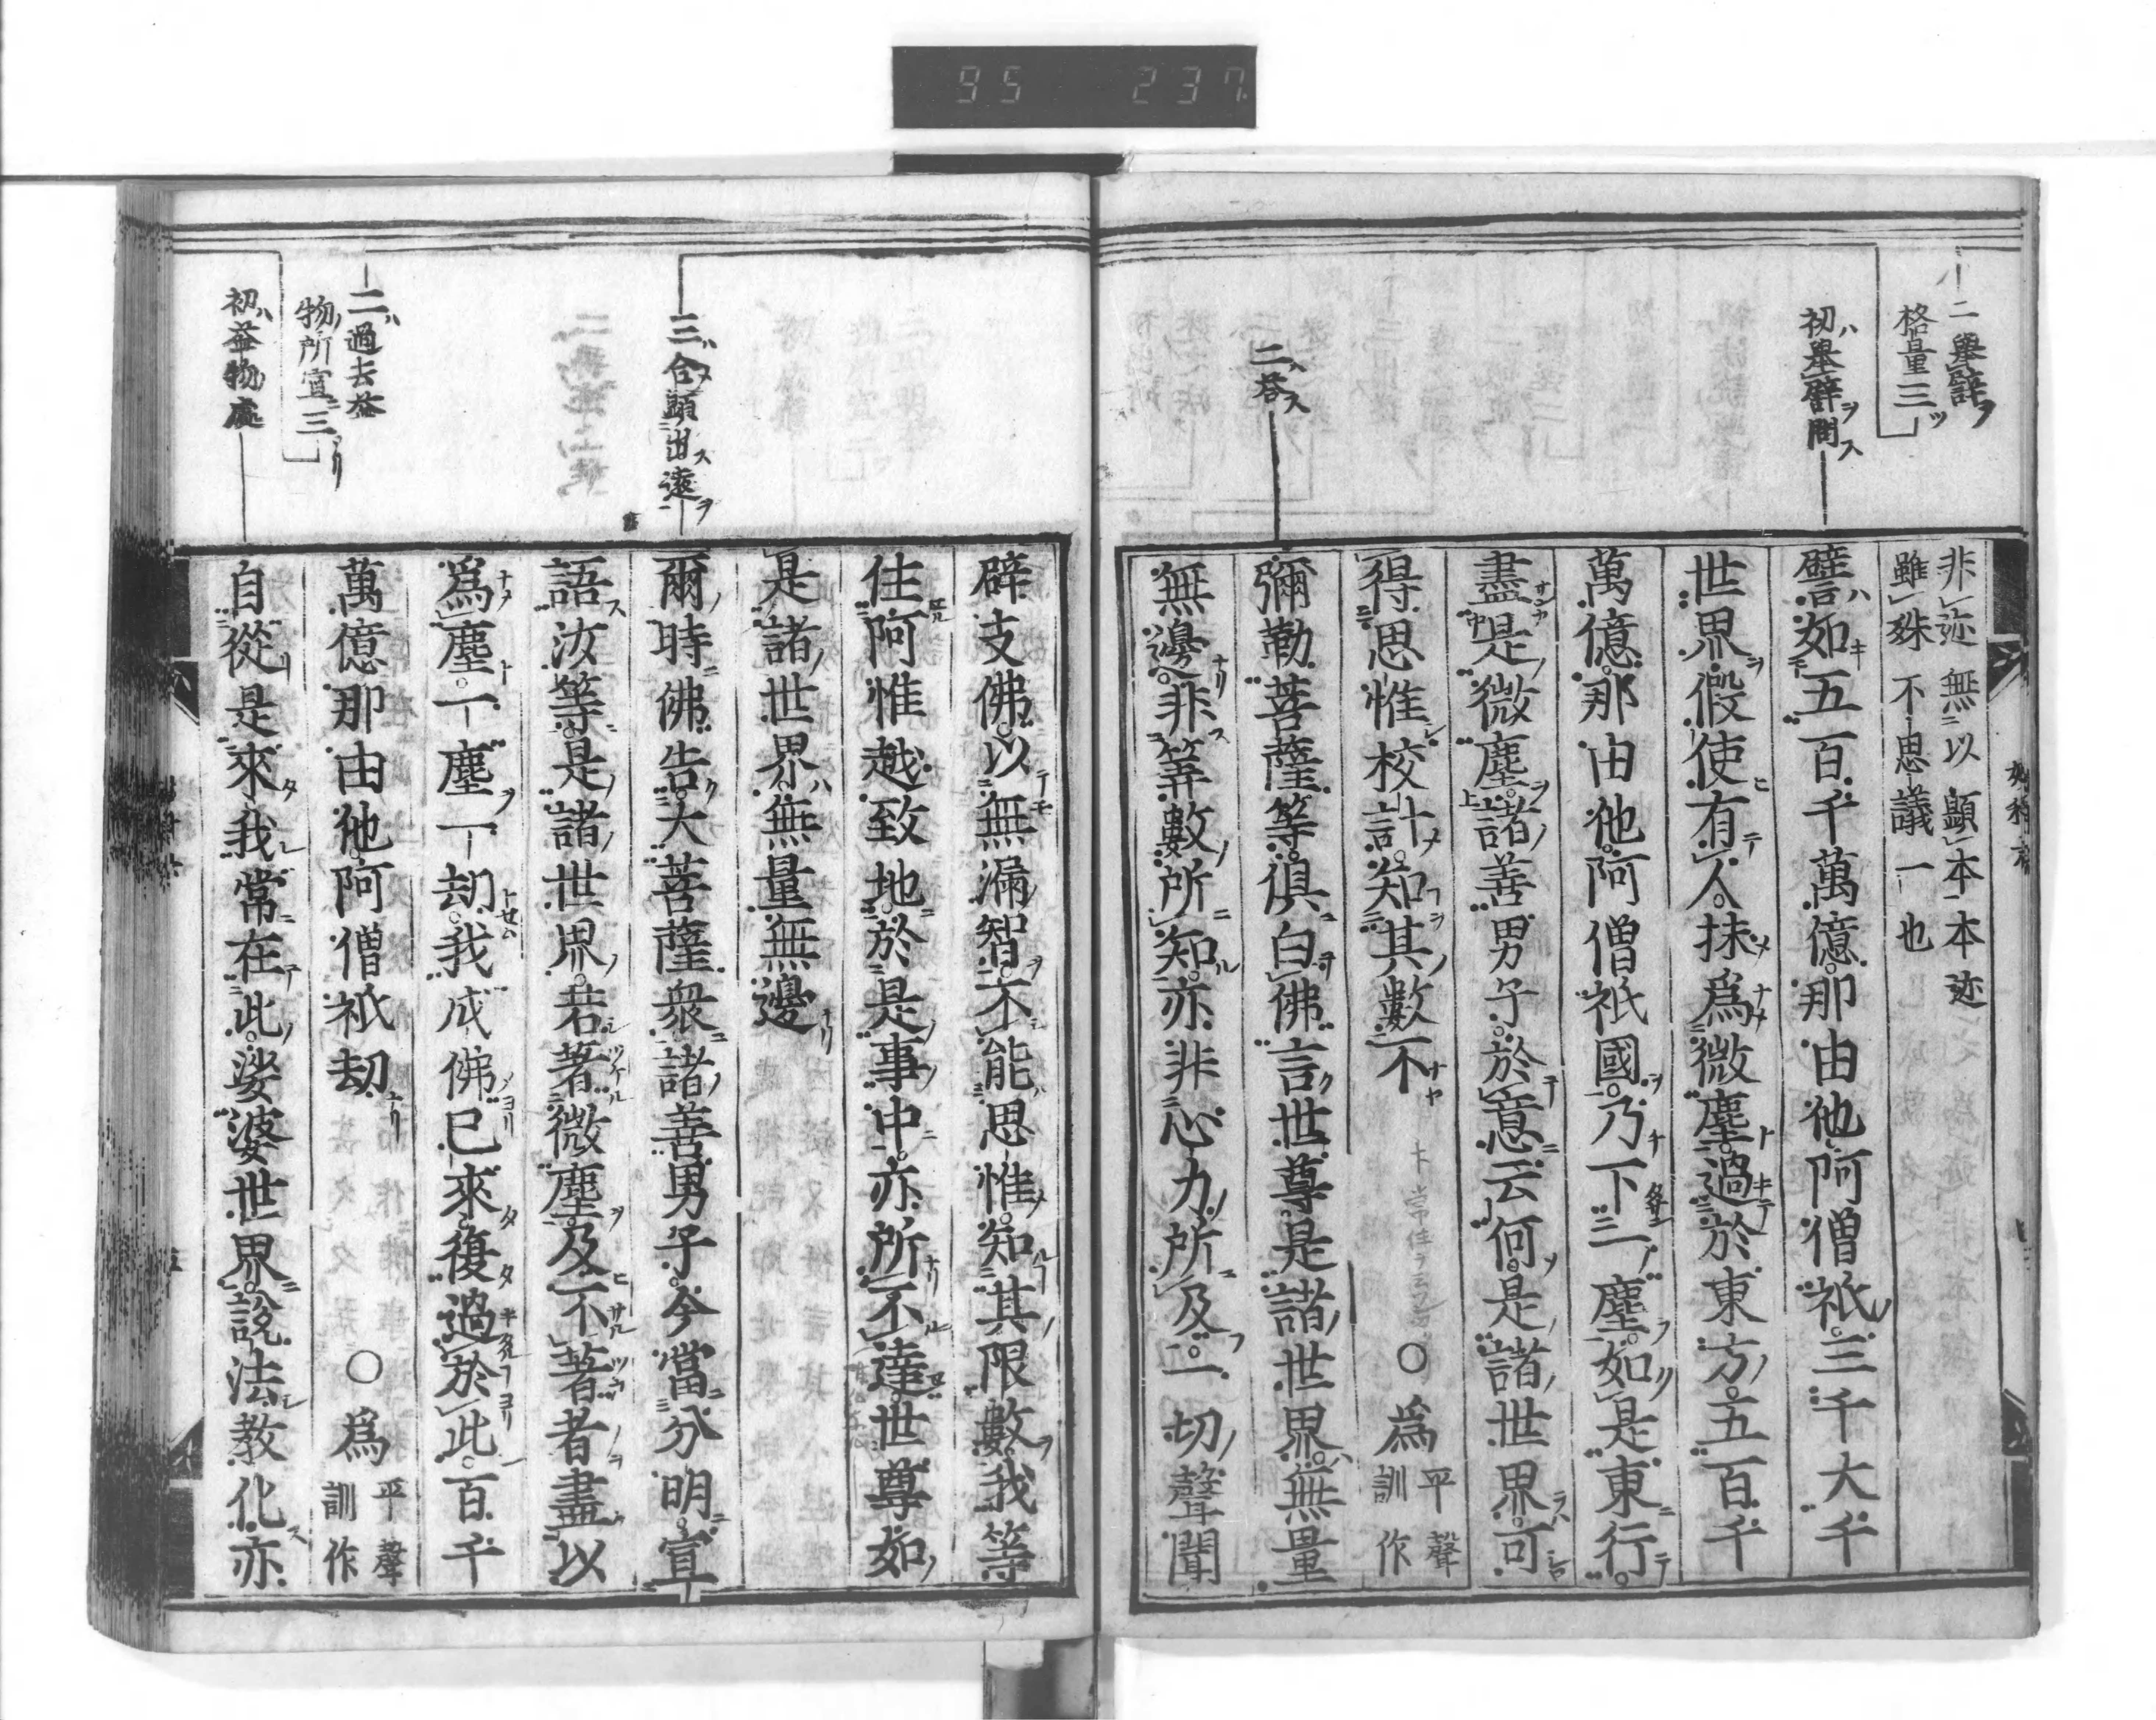 95 237
二舉譬ヲ
格量三ツ
初ハ舉譬ヲ問ス
二ハ答ス
非迹無以顯本本迹
雖殊不思議一也
譬如五百千萬億那由他阿僧祇三千大千
世界假使有人抹爲微塵過於東方五百千
萬億那由他阿僧祇國乃下一塵如是東行
盡是微塵諸善男子於意云何是諸世界可
得思惟校計知其數不 ○爲平聲訓作
彌勒菩薩等俱白佛言世尊是諸世界無量
無邊非筭數所知亦非心力所及一切聲聞
三ハ合顯出遠ヲ
二ハ過去益
物所宣三
初ハ益物處
辟支佛以無漏智不能思惟知其限數我等
住阿惟越致地於是事中亦所不達世尊如
是諸世界無量無邊
爾時佛告大菩薩衆諸善男子今當分明宣
語汝等是諸世界若著微塵及不著者盡以
爲塵一塵一劫我成佛已來復過於此百千
萬億那由他阿僧祇劫 ○爲平聲訓作
自從是來我常在此娑婆世界說法教化亦